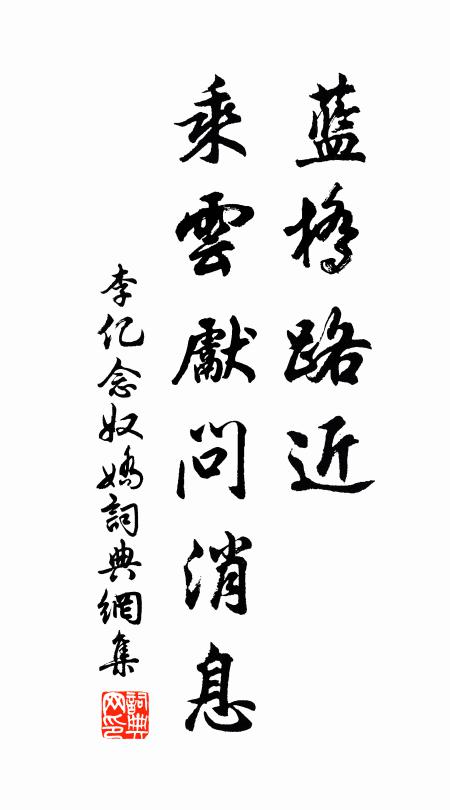 藍橋路近
乘雲獻問消息
李亿念奴嬌詞典網集
詞典网印